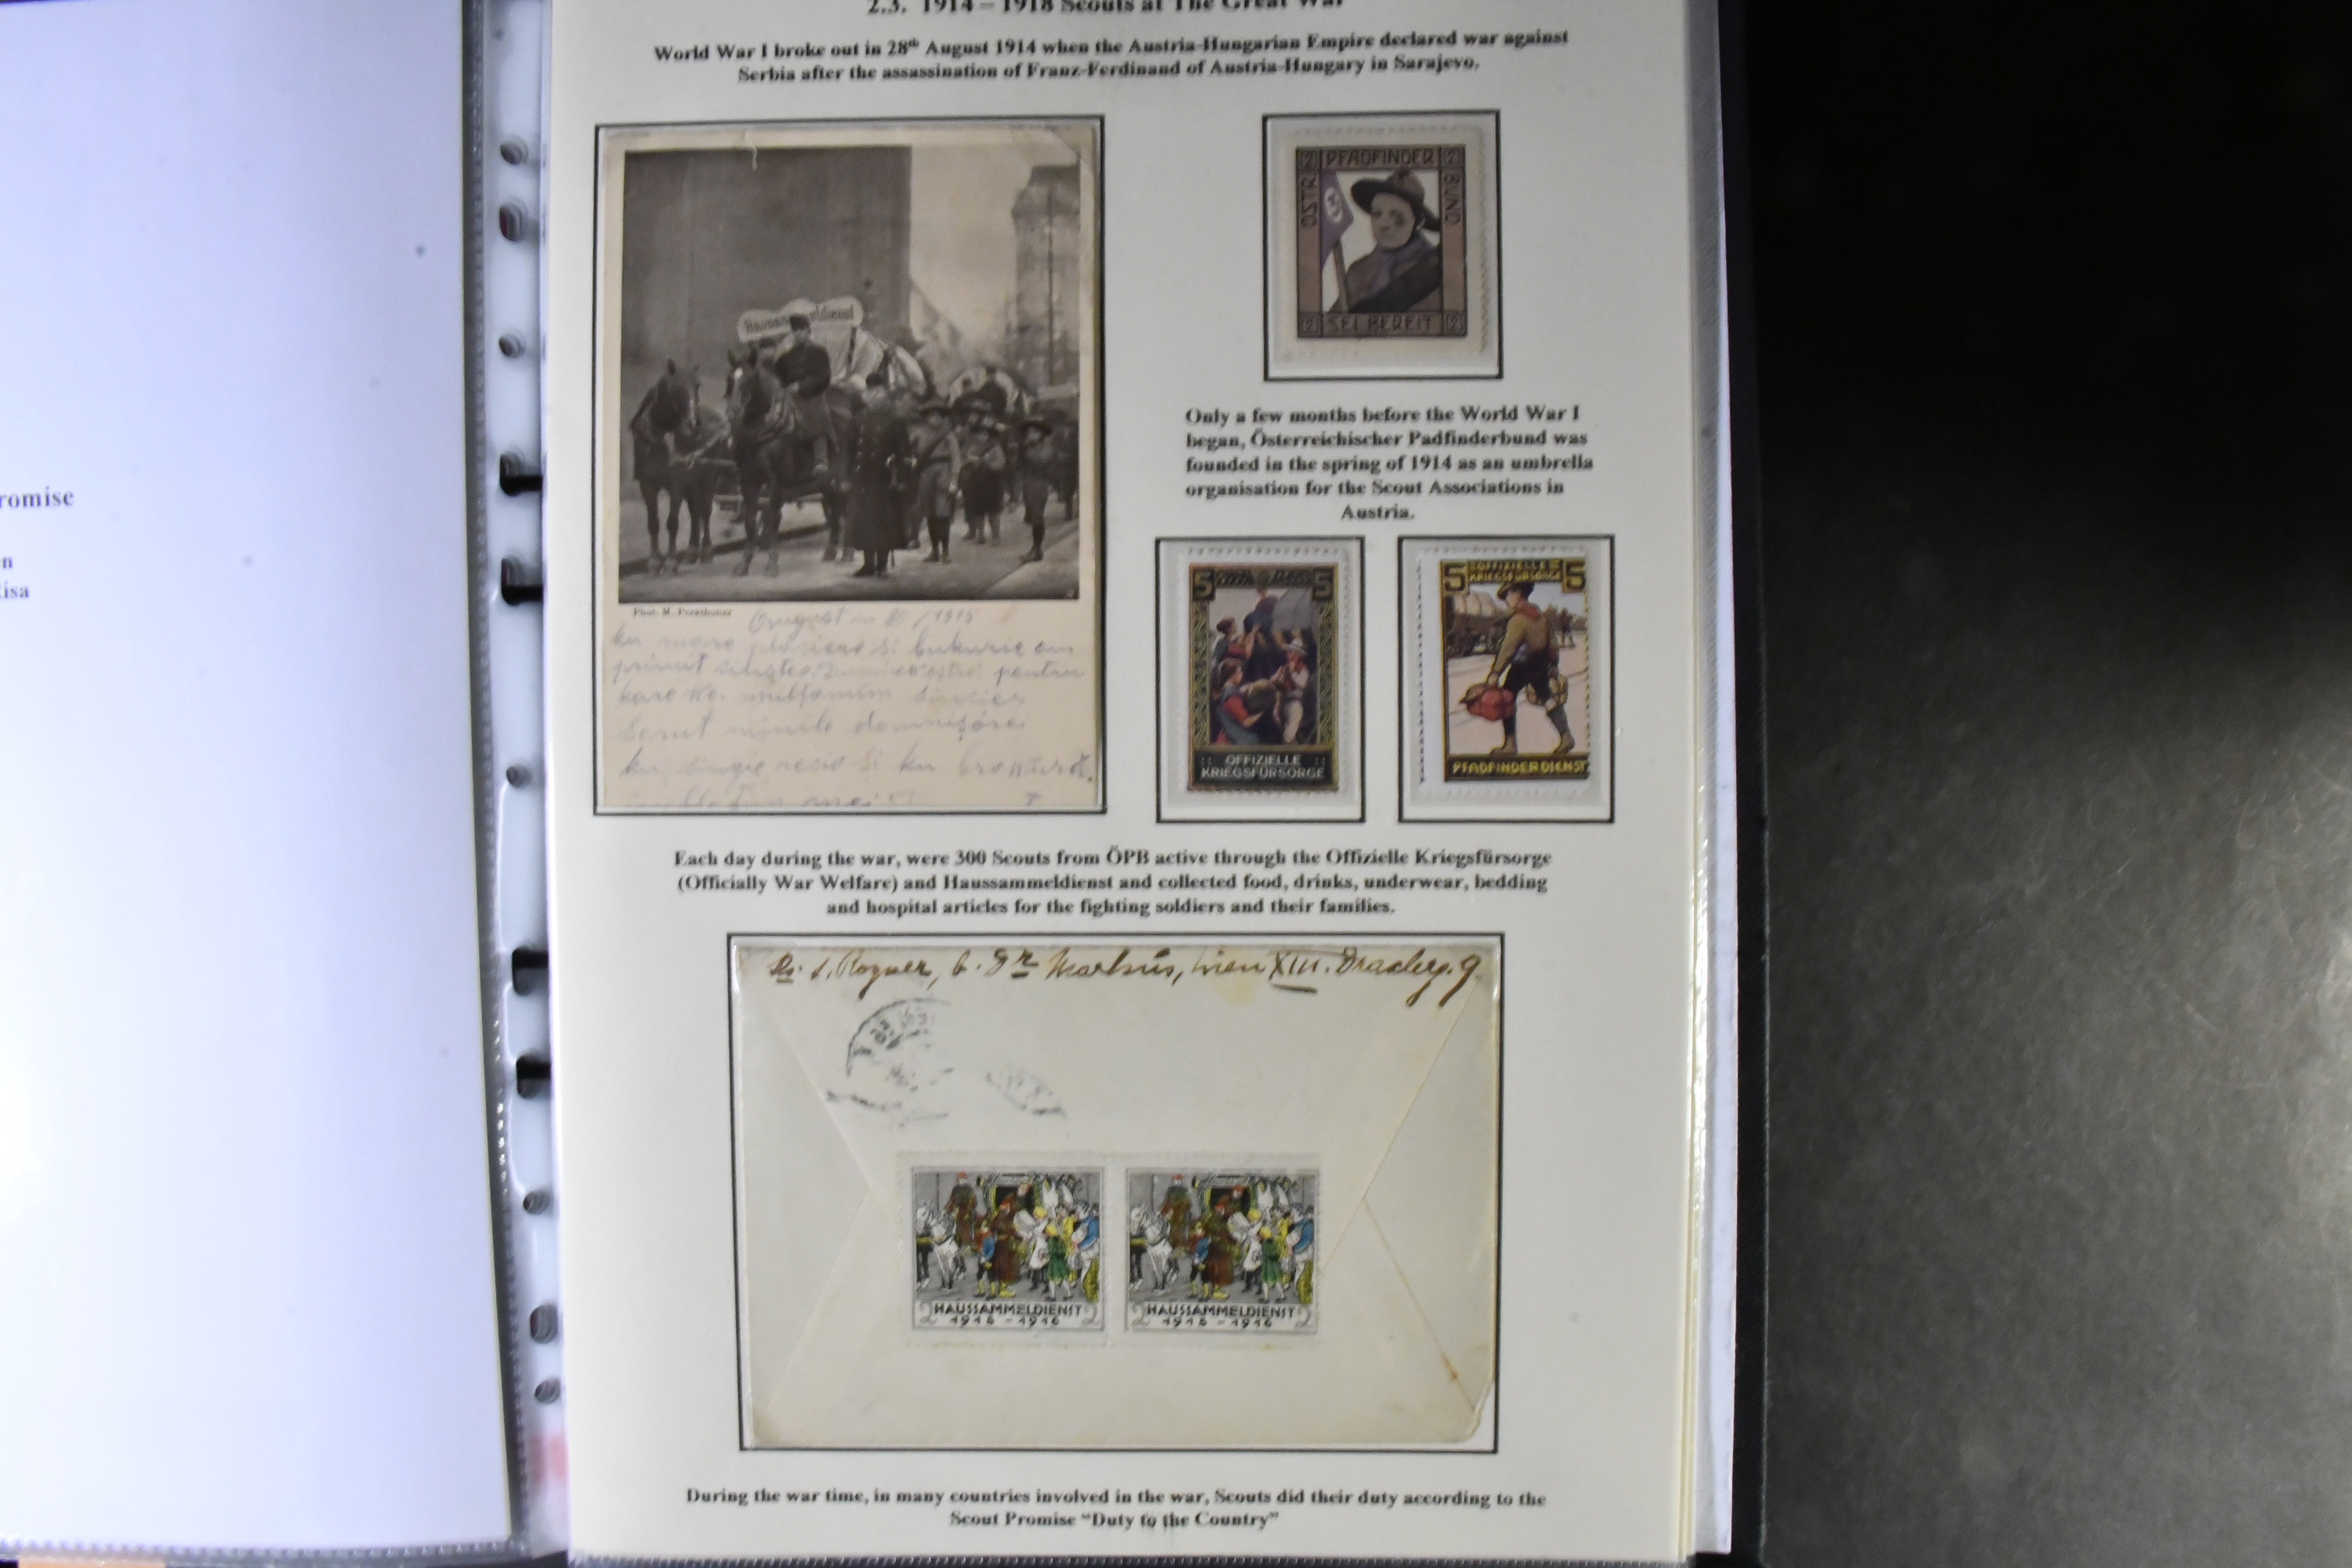 romise
n
isa
2.3. 1914 – 1918 Scouts at The Great War
World War I broke out in 28th August 1914 when the Austria-Hungarian Empire declared war against
Serbia after the assassination of Franz-Ferdinand of Austria-Hungary in Sarajevo.
Phot. M. Perathoner
August /1915
si bukurie am
primit pentru
kare
Sarut domnișoare
ku si ku
2 PFADFINDER 2
ÖSTR.
BUND
2 SEI BEREIT 2
Only a few months before the World War I
began, Österreichischer Padfinderbund was
founded in the spring of 1914 as an umbrella
organisation for the Scout Associations in
Austria.
5 5
OFFIZIELLE
KRIEGSFÜRSORGE
5 OFFIZIELLE 5
KRIEGSFÜRSORGE
PFADFINDERDIENST
Each day during the war, were 300 Scouts from ÖPB active through the Offizielle Kriegsfürsorge
(Officially War Welfare) and Haussammeldienst and collected food, drinks, underwear, bedding
and hospital articles for the fighting soldiers and their families.
Rogner, b. Dr Markus, Wien XIII. 9.
2 HAUSSAMMELDIENST 2
1915 - 1916
2 HAUSSAMMELDIENST 2
1915 - 1916
During the war time, in many countries involved in the war, Scouts did their duty according to the
Scout Promise “Duty to the Country”